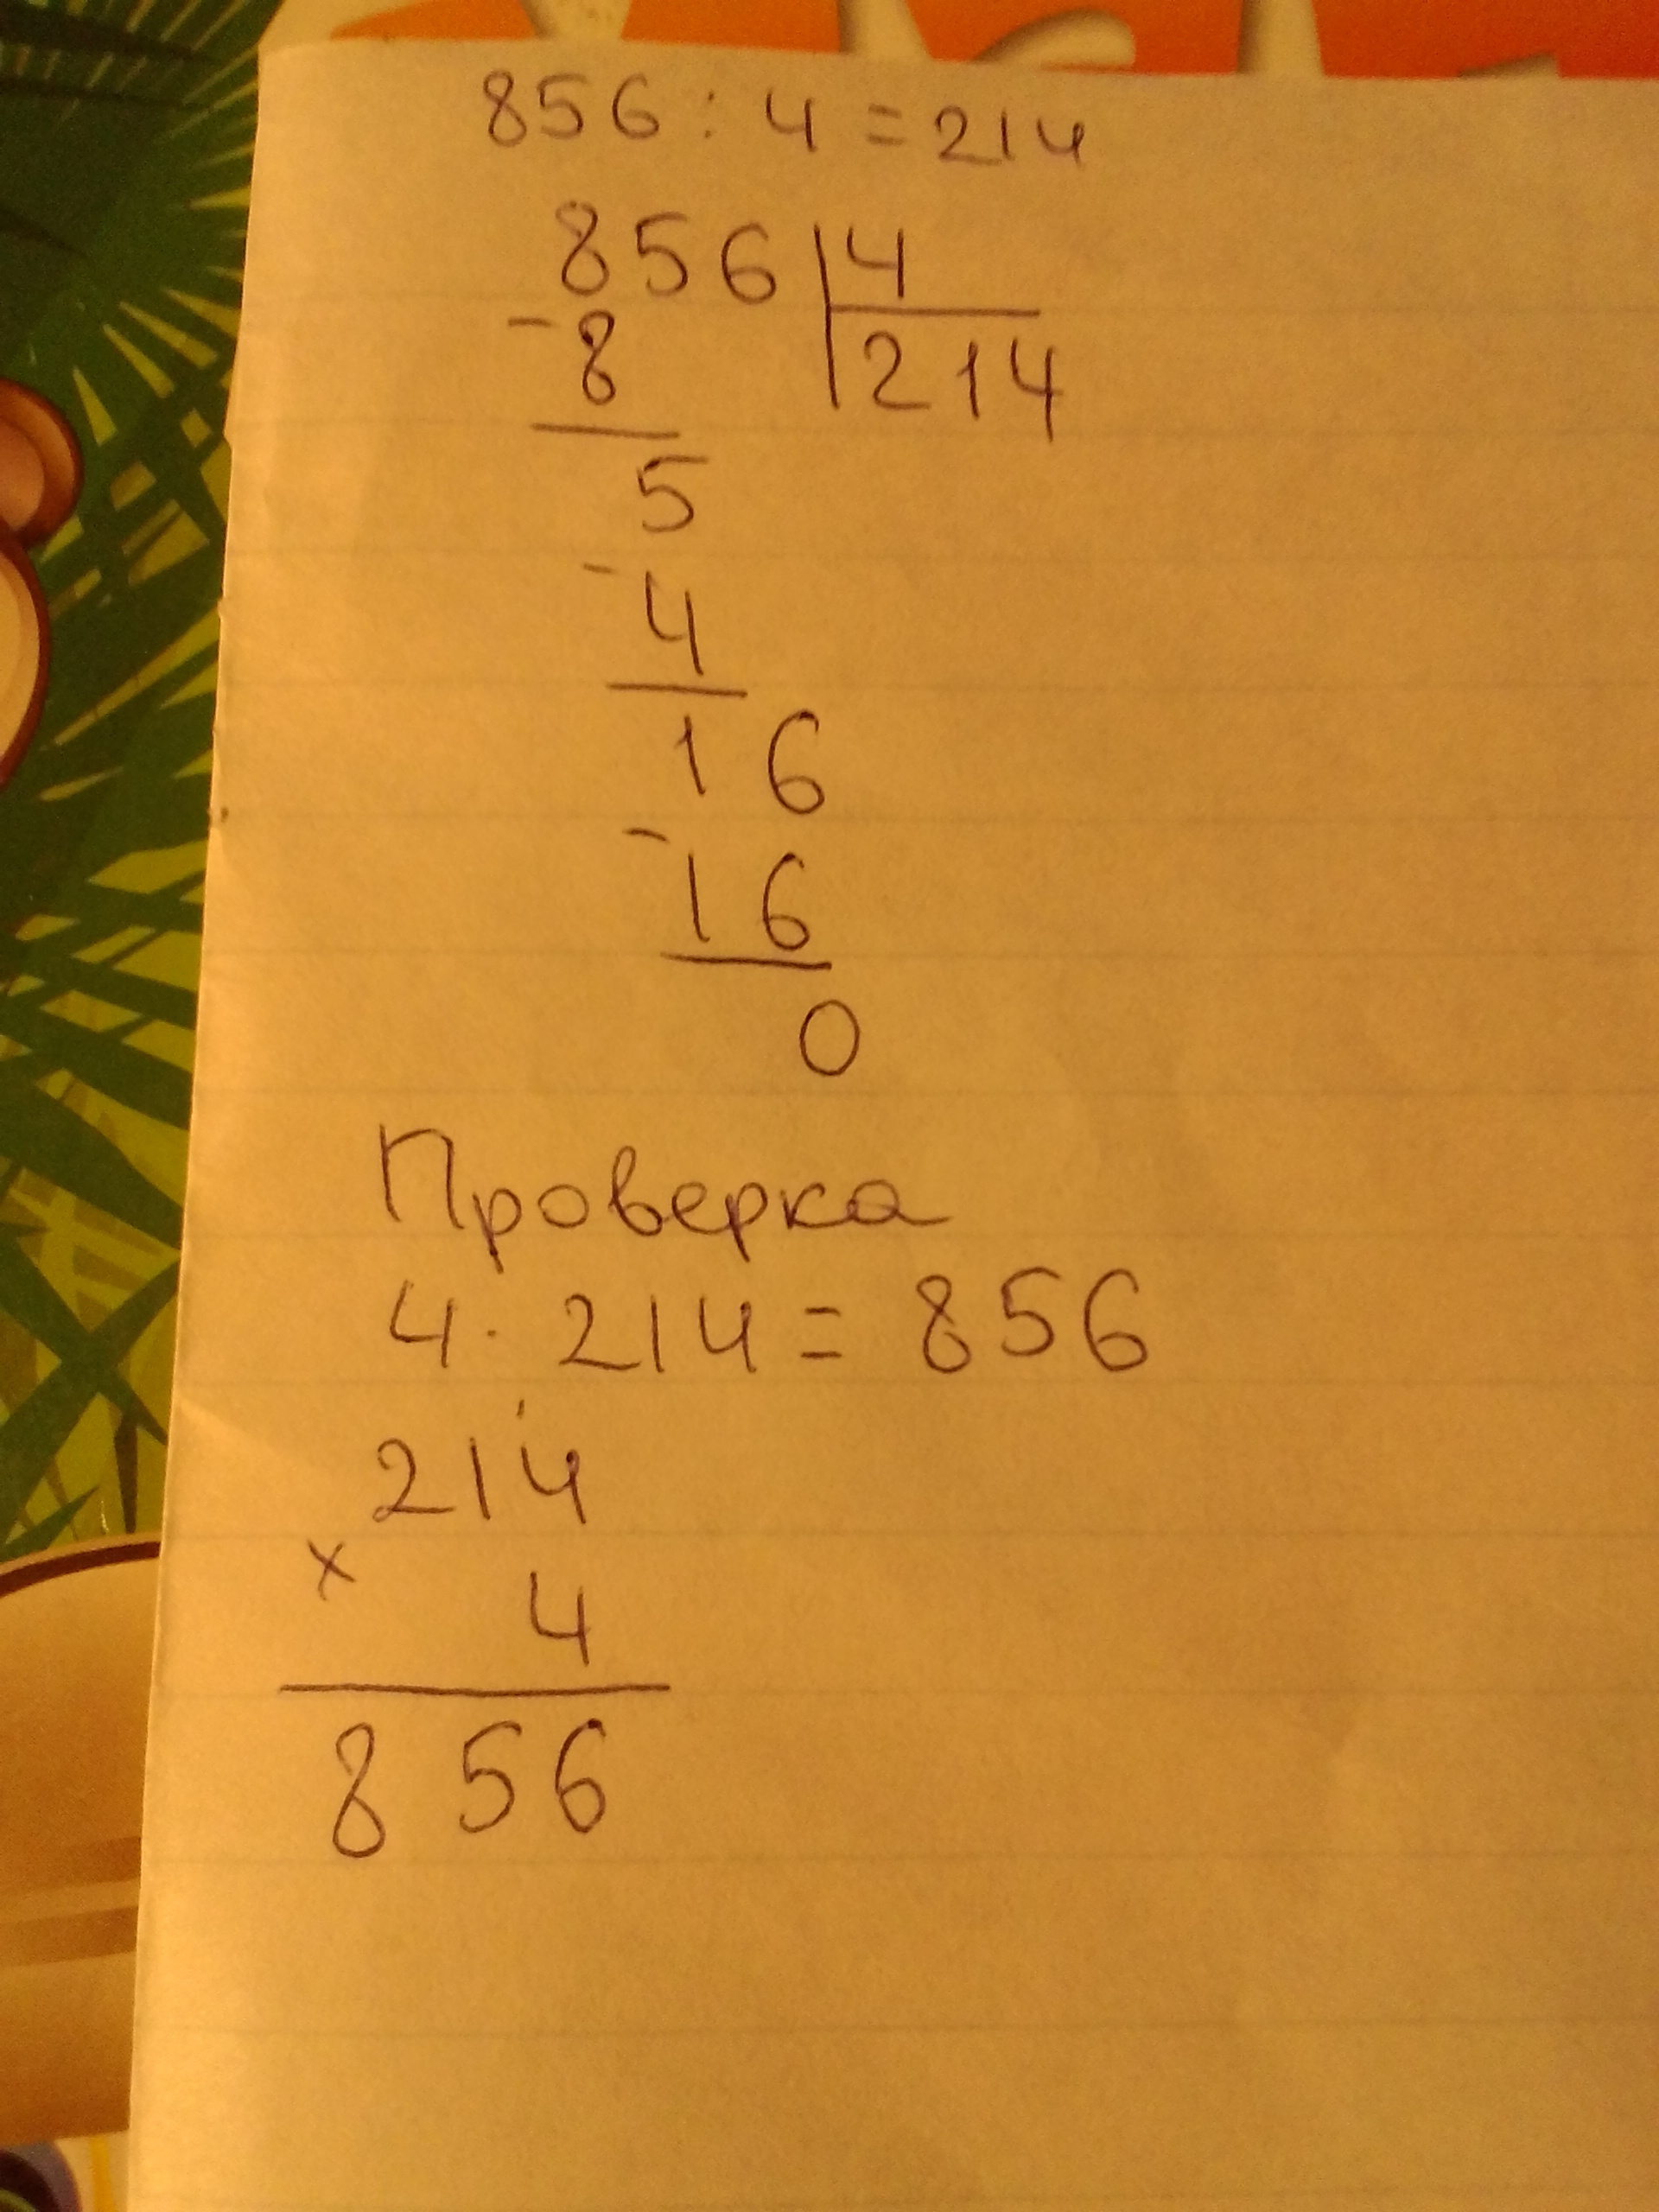 856 : 4 = 214
856 4
- 8 214
5
- 4
16
- 16
0
Проверка
4 · 214 = 856
1
214
× 4
856